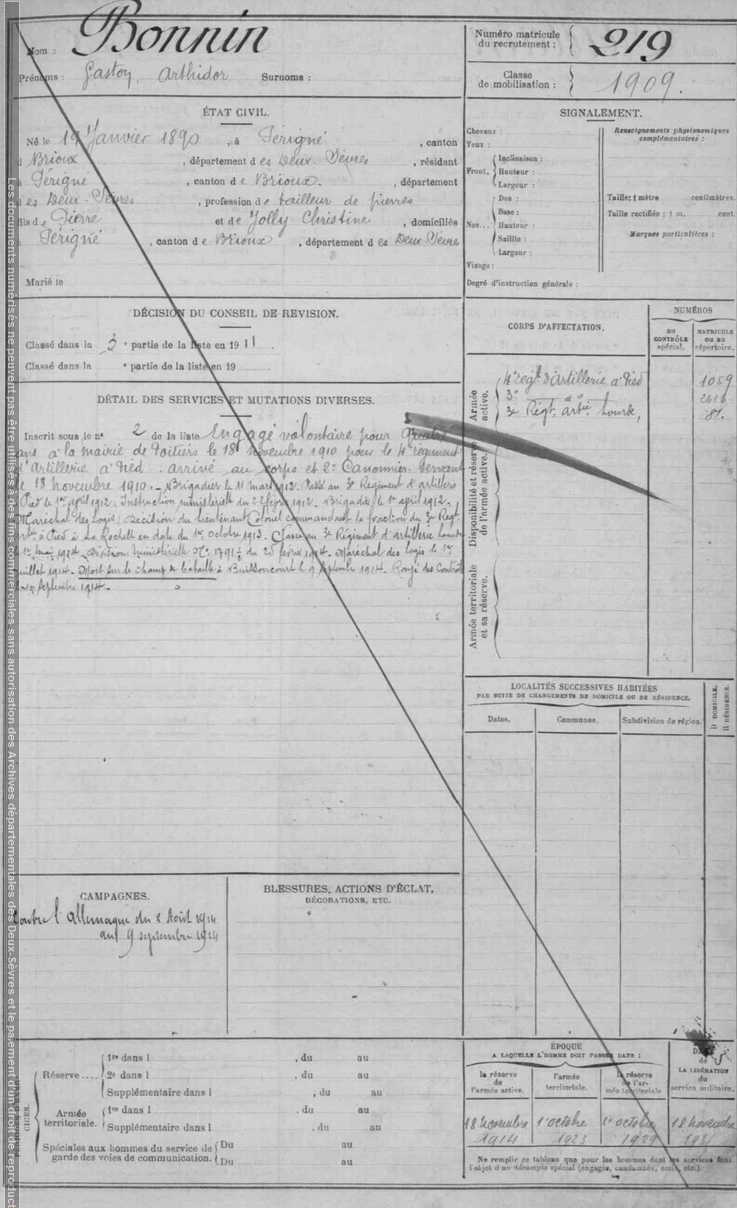 Nom : Bonnin
Prénoms : Gaston, Arthidor Surnoms :
Numéro matricule du recrutement : 219
Classe de mobilisation : 1909.
ÉTAT CIVIL.
Né le 19 Janvier 1890, à Périgné, canton
d Brioux, département des Deux Sèvres, résidant
à Périgné, canton de Brioux, département
des Deux-Sèvres, profession de tailleur de pierres
fils de Pierre et de Jolly Christine, domiciliés
à Périgné, canton de Brioux, département des Deux Sèvres
Marié le
SIGNALEMENT.
Cheveux :
Yeux :
Front. Inclinaison :
Hauteur :
Largeur :
Nez... Dos :
Base :
Hauteur :
Saillie :
Largeur :
Visage :
Renseignements physionomiques complémentaires :
Taille : 1 mètre centimètres.
Taille rectifiée : 1 m. cent.
Marques particulières :
Degré d'instruction générale :
DÉCISION DU CONSEIL DE REVISION.
Classé dans la 3e partie de la liste en 1911
Classé dans la e partie de la liste en 19
DÉTAIL DES SERVICES ET MUTATIONS DIVERSES.
Inscrit sous le n° 2 de la liste Engagé volontaire pour quatre
ans à la mairie de Poitiers le 18 novembre 1910 pour le 4e régiment
d'Artillerie à Pied. arrivé au corps et 2e Canonnier Servant
le 18 novembre 1910. Brigadier le 11 mars 1912. Passé au 3e Régiment d'artillerie
à Pied le 1er avril 1912. Instruction ministérielle du février 1912. Brigadier le 1er avril 1912.
Maréchal des Logis, décision du Lieutenant Colonel commandant la fraction du 3e Régt
à Pied à La Rochelle en date du 1er octobre 1913. Classé au 3e Régiment d'artillerie lourde
le 1er mai 1914. Décision ministérielle février 1914. Maréchal des logis le 1er
juillet 1914. Mort sur le champ de bataille à Buissoncourt le 9 septembre 1914. Rayé des Contrôles
septembre 1914.
CORPS D'AFFECTATION.
NUMÉROS
DU CONTRÔLE spécial.
MATRICULE OU DU répertoire.
Armée active.
4e régt d'artillerie à Pied 1059
3e d°
3e Régt. artie lourde, 81.
Disponibilité et réserve de l'armée active.
Armée territoriale et sa réserve.
LOCALITÉS SUCCESSIVES HABITÉES
PAR SUITE DE CHANGEMENTS DE DOMICILE OU DE RÉSIDENCE.
Dates. Communes. Subdivision de région. D DOMICILE. R RÉSIDENCE.
CAMPAGNES.
Contre l'Allemagne du 2 Août 1914
au 9 septembre 1914
BLESSURES, ACTIONS D'ÉCLAT,
DÉCORATIONS, ETC.
Réserve.... 1re dans l , du au
2e dans l , du au
Supplémentaire dans l , du au
Armée territoriale. 1re dans l , du au
Supplémentaire dans l , du au
Spéciales aux hommes du service de garde des voies de communication. Du au
Du au
ÉPOQUE
A LAQUELLE L'HOMME DOIT PASSER DANS :
la réserve de l'armée active.
l'armée territoriale.
la réserve de l'armée territoriale
DATE de LA LIBÉRATION du service militaire.
18 novembre 1914
1er octobre 1923
1er octobre 1929
18 novembre
Ne remplir ce tableau que pour les hommes dont les services font
l'objet d'un décompte spécial (engagés, condamnés, omis, etc.)
Les documents numérisés ne peuvent pas être utilisés à des fins commerciales sans autorisation des Archives départementales des Deux-Sèvres et le paiement d'un droit de reproduct